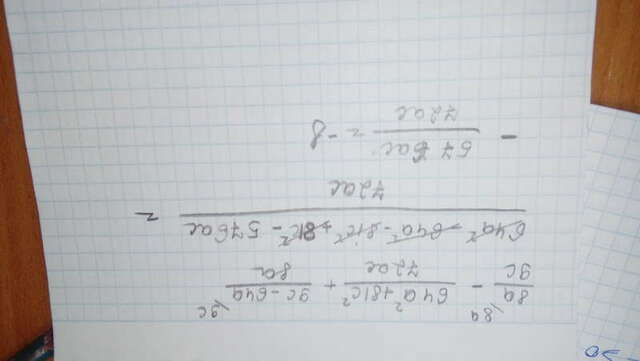 8a\8a / 9c - 64a²+81c² / 72ac + 9c-64a\9c / 8a
64a²-64a²-81c²+81c²-576ac / 72ac =
- 576ac / 72ac = -8
≥0